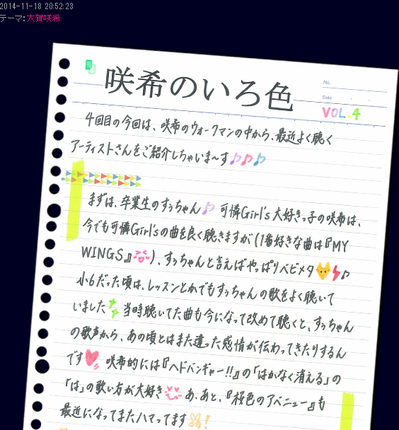 2014-11-18 20:52:23
テーマ: 大賀咲希
咲希のいろ色
No.
Date
VOL.4
4回目の今回は、咲希のウォークマンの中から、最近よく聴く
アーティストさんをご紹介しちゃいま〜す♪♪♪
まずは、卒業生のすぅちゃん♪ 可憐Girl's 大好きっ子の咲希は、
今でも可憐Girl'sの曲を良く聴きますが(1番好きな曲は『MY
WINGS』)、すぅちゃんと言えばやっぱりベビメタ♪
小6だった頃は、レッスンとかでもすぅちゃんの歌をよく聴いて
いました 当時聴いてた曲も今になって改めて聴くと、すぅちゃん
の歌声から、あの頃とはまた違った感情が伝わってきたりするん
です 咲希的には『ヘドバンギャー!!』の「はかなく消える」の
「は」の歌い方が大好き あ、あと、『桜色のアベニュー』も
最近になってまたハマってます